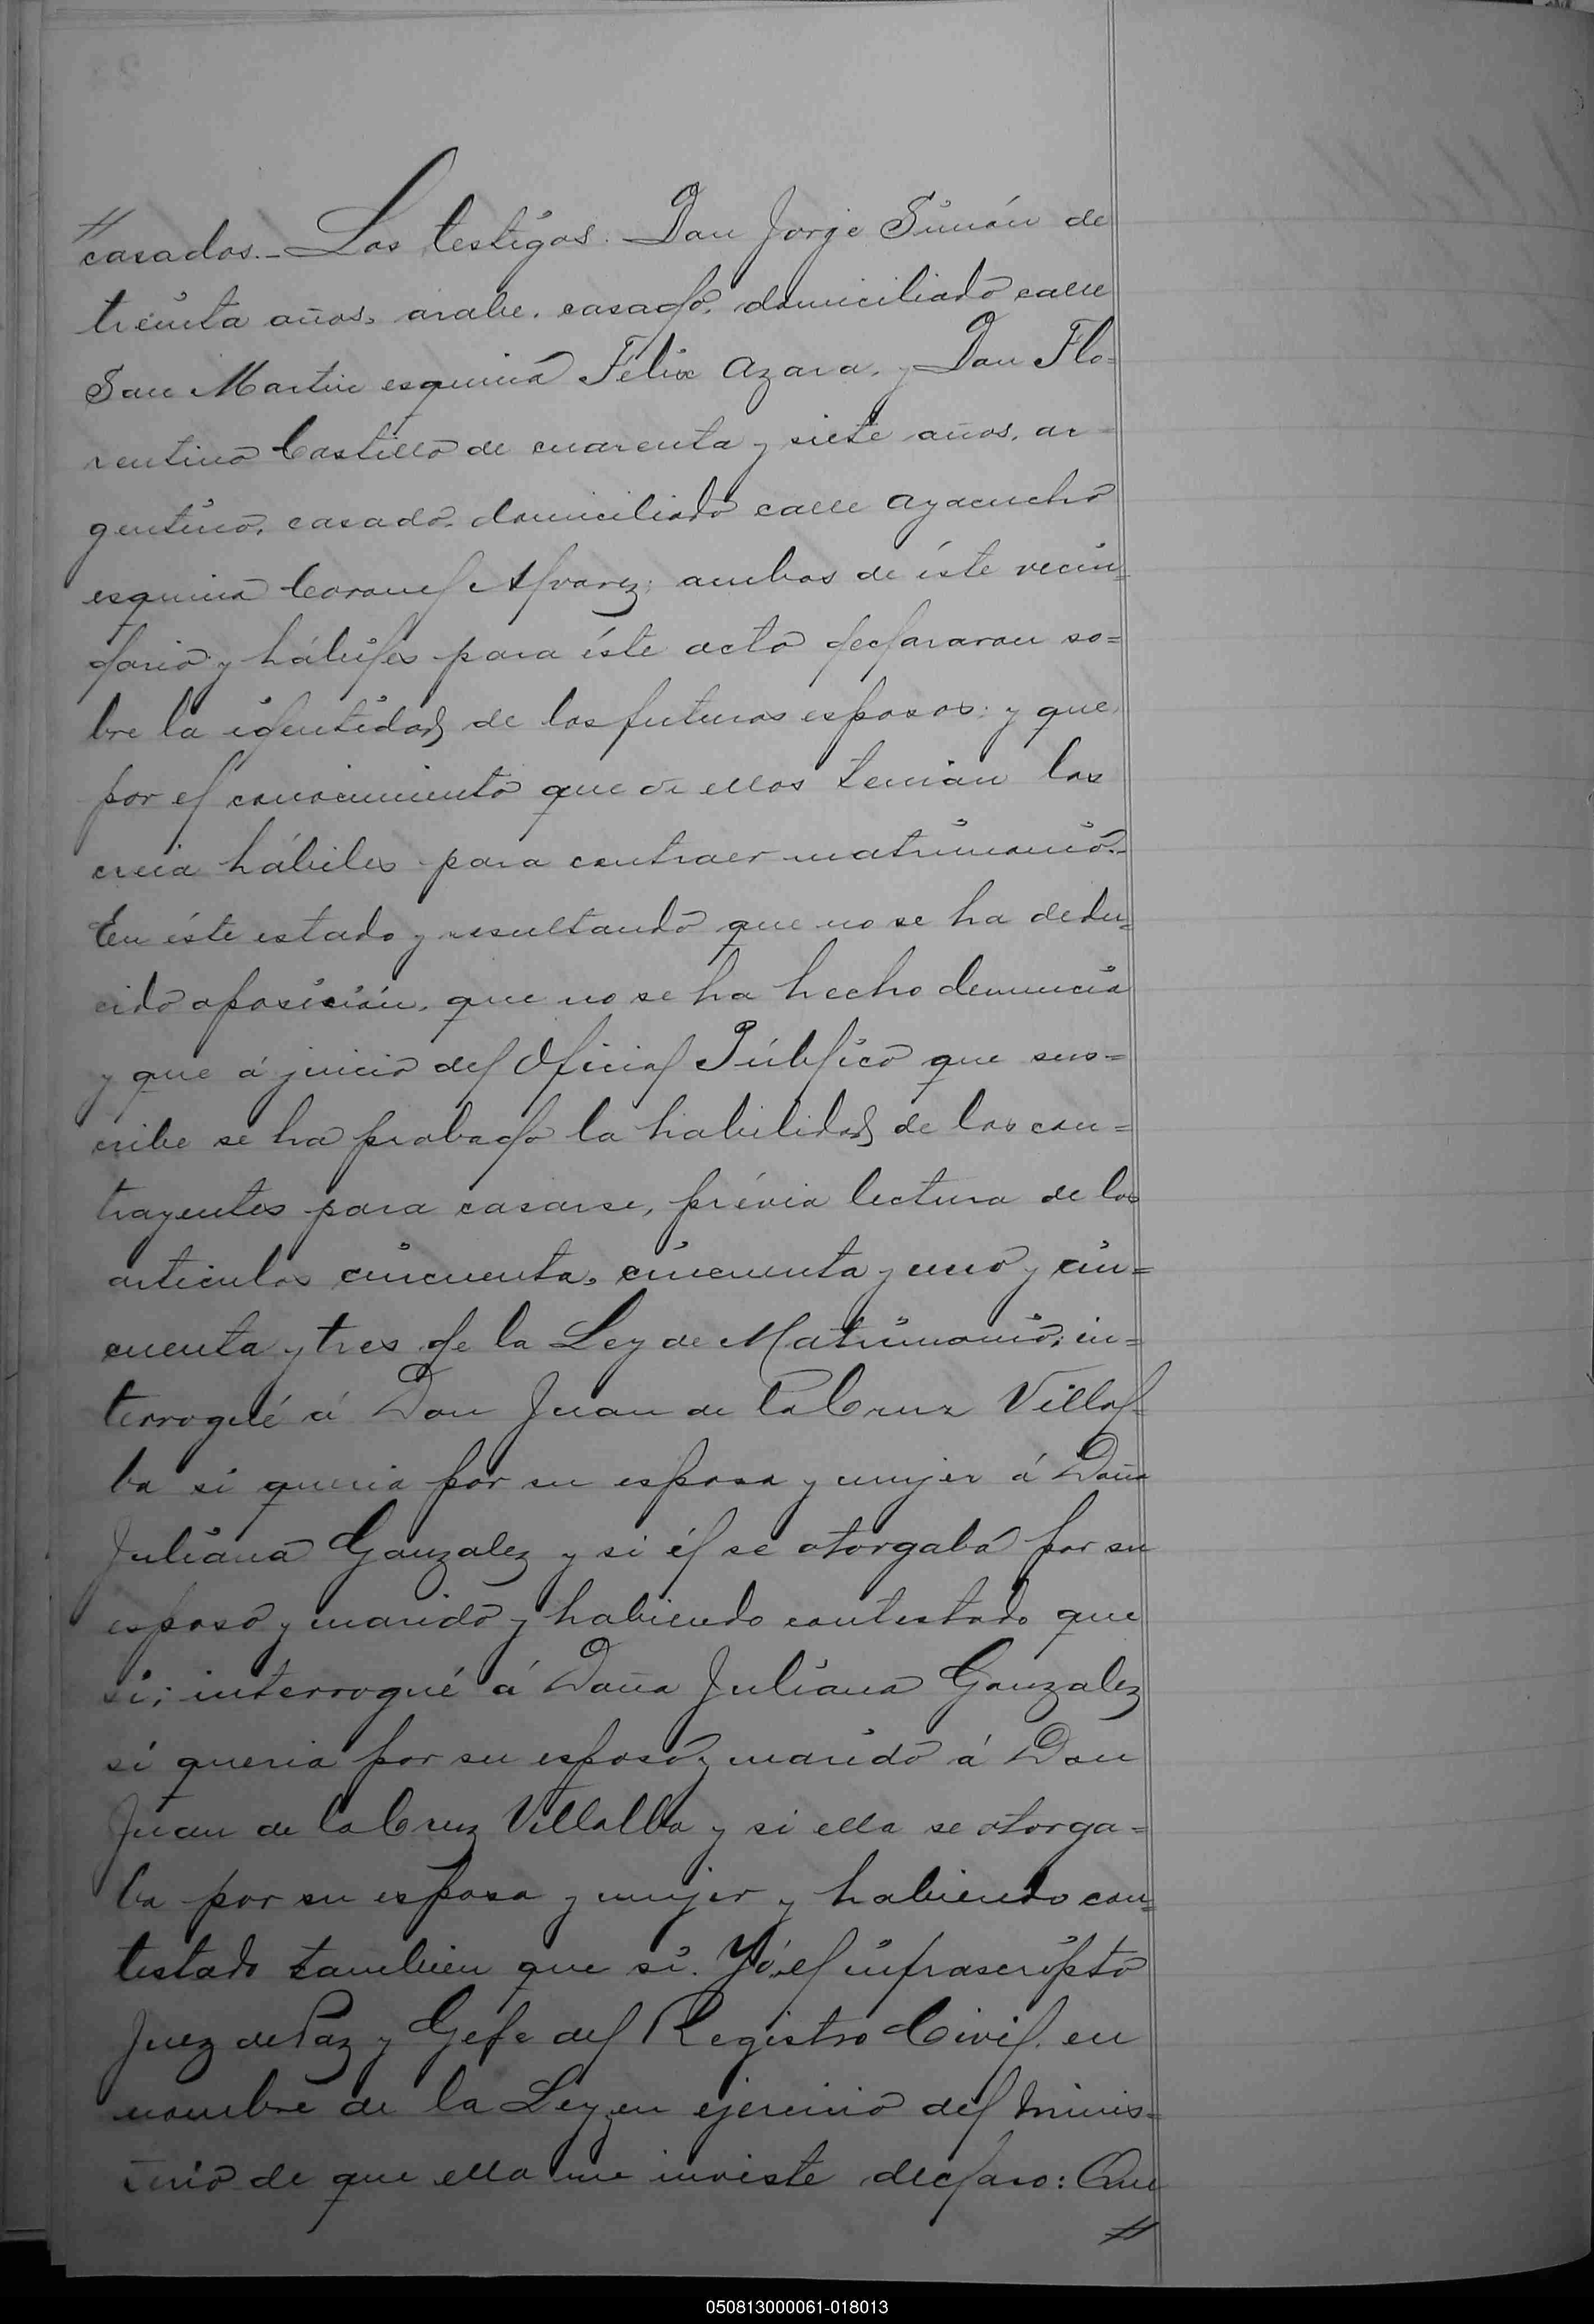 //
casados.- Los testigos. Don Jorje Simón de
treinta años, arabe, casado, domiciliado calle
San Martin esquina Felix Azara, y Don Flo-
rentino Castillo de cuarenta y siete años, ar-
gentino, casado, domiciliado calle Ayacucho
esquina Coronel Alvarez; ambos de éste vecin=
dario y hábiles para éste acto declararon so=
bre la identidad de los futuros esposos; y que
por el conocimiento que de ellos tenian los
creia hábiles para contraer matrimonio.-
En éste estado y resultando que no se ha dedu=
cido oposición, que no se ha hecho denuncia
y que á juicio del Oficial Público que sus=
cribe se ha probado la habilidad de los con=
trayentes para casarse, prévia lectura de los
articulos cincuenta, cincuenta y uno y cin=
cuenta y tres de la Ley de Matrimonio; in=
terrogué á Don Juan de la Cruz Villal-
ba si queria por su esposa y mujer á Doña
Juliana Gonzalez y si él se otorgaba por su
esposo y marido y habiendo contestado que
si; interrogué á Doña Juliana Gonzalez
si queria por su esposo y marido á Don
Juan de la Cruz Villalba y si ella se otorga=
ba por su esposa y mujer y habiendo con=
testado tambien que si. Yó, el infrascripto
Juez de Paz y Gefe del Registro Civil, en
nombre de la Ley, en ejercicio del minis=
terio de que ella me inviste declaro: Que
//
050813000061-018013